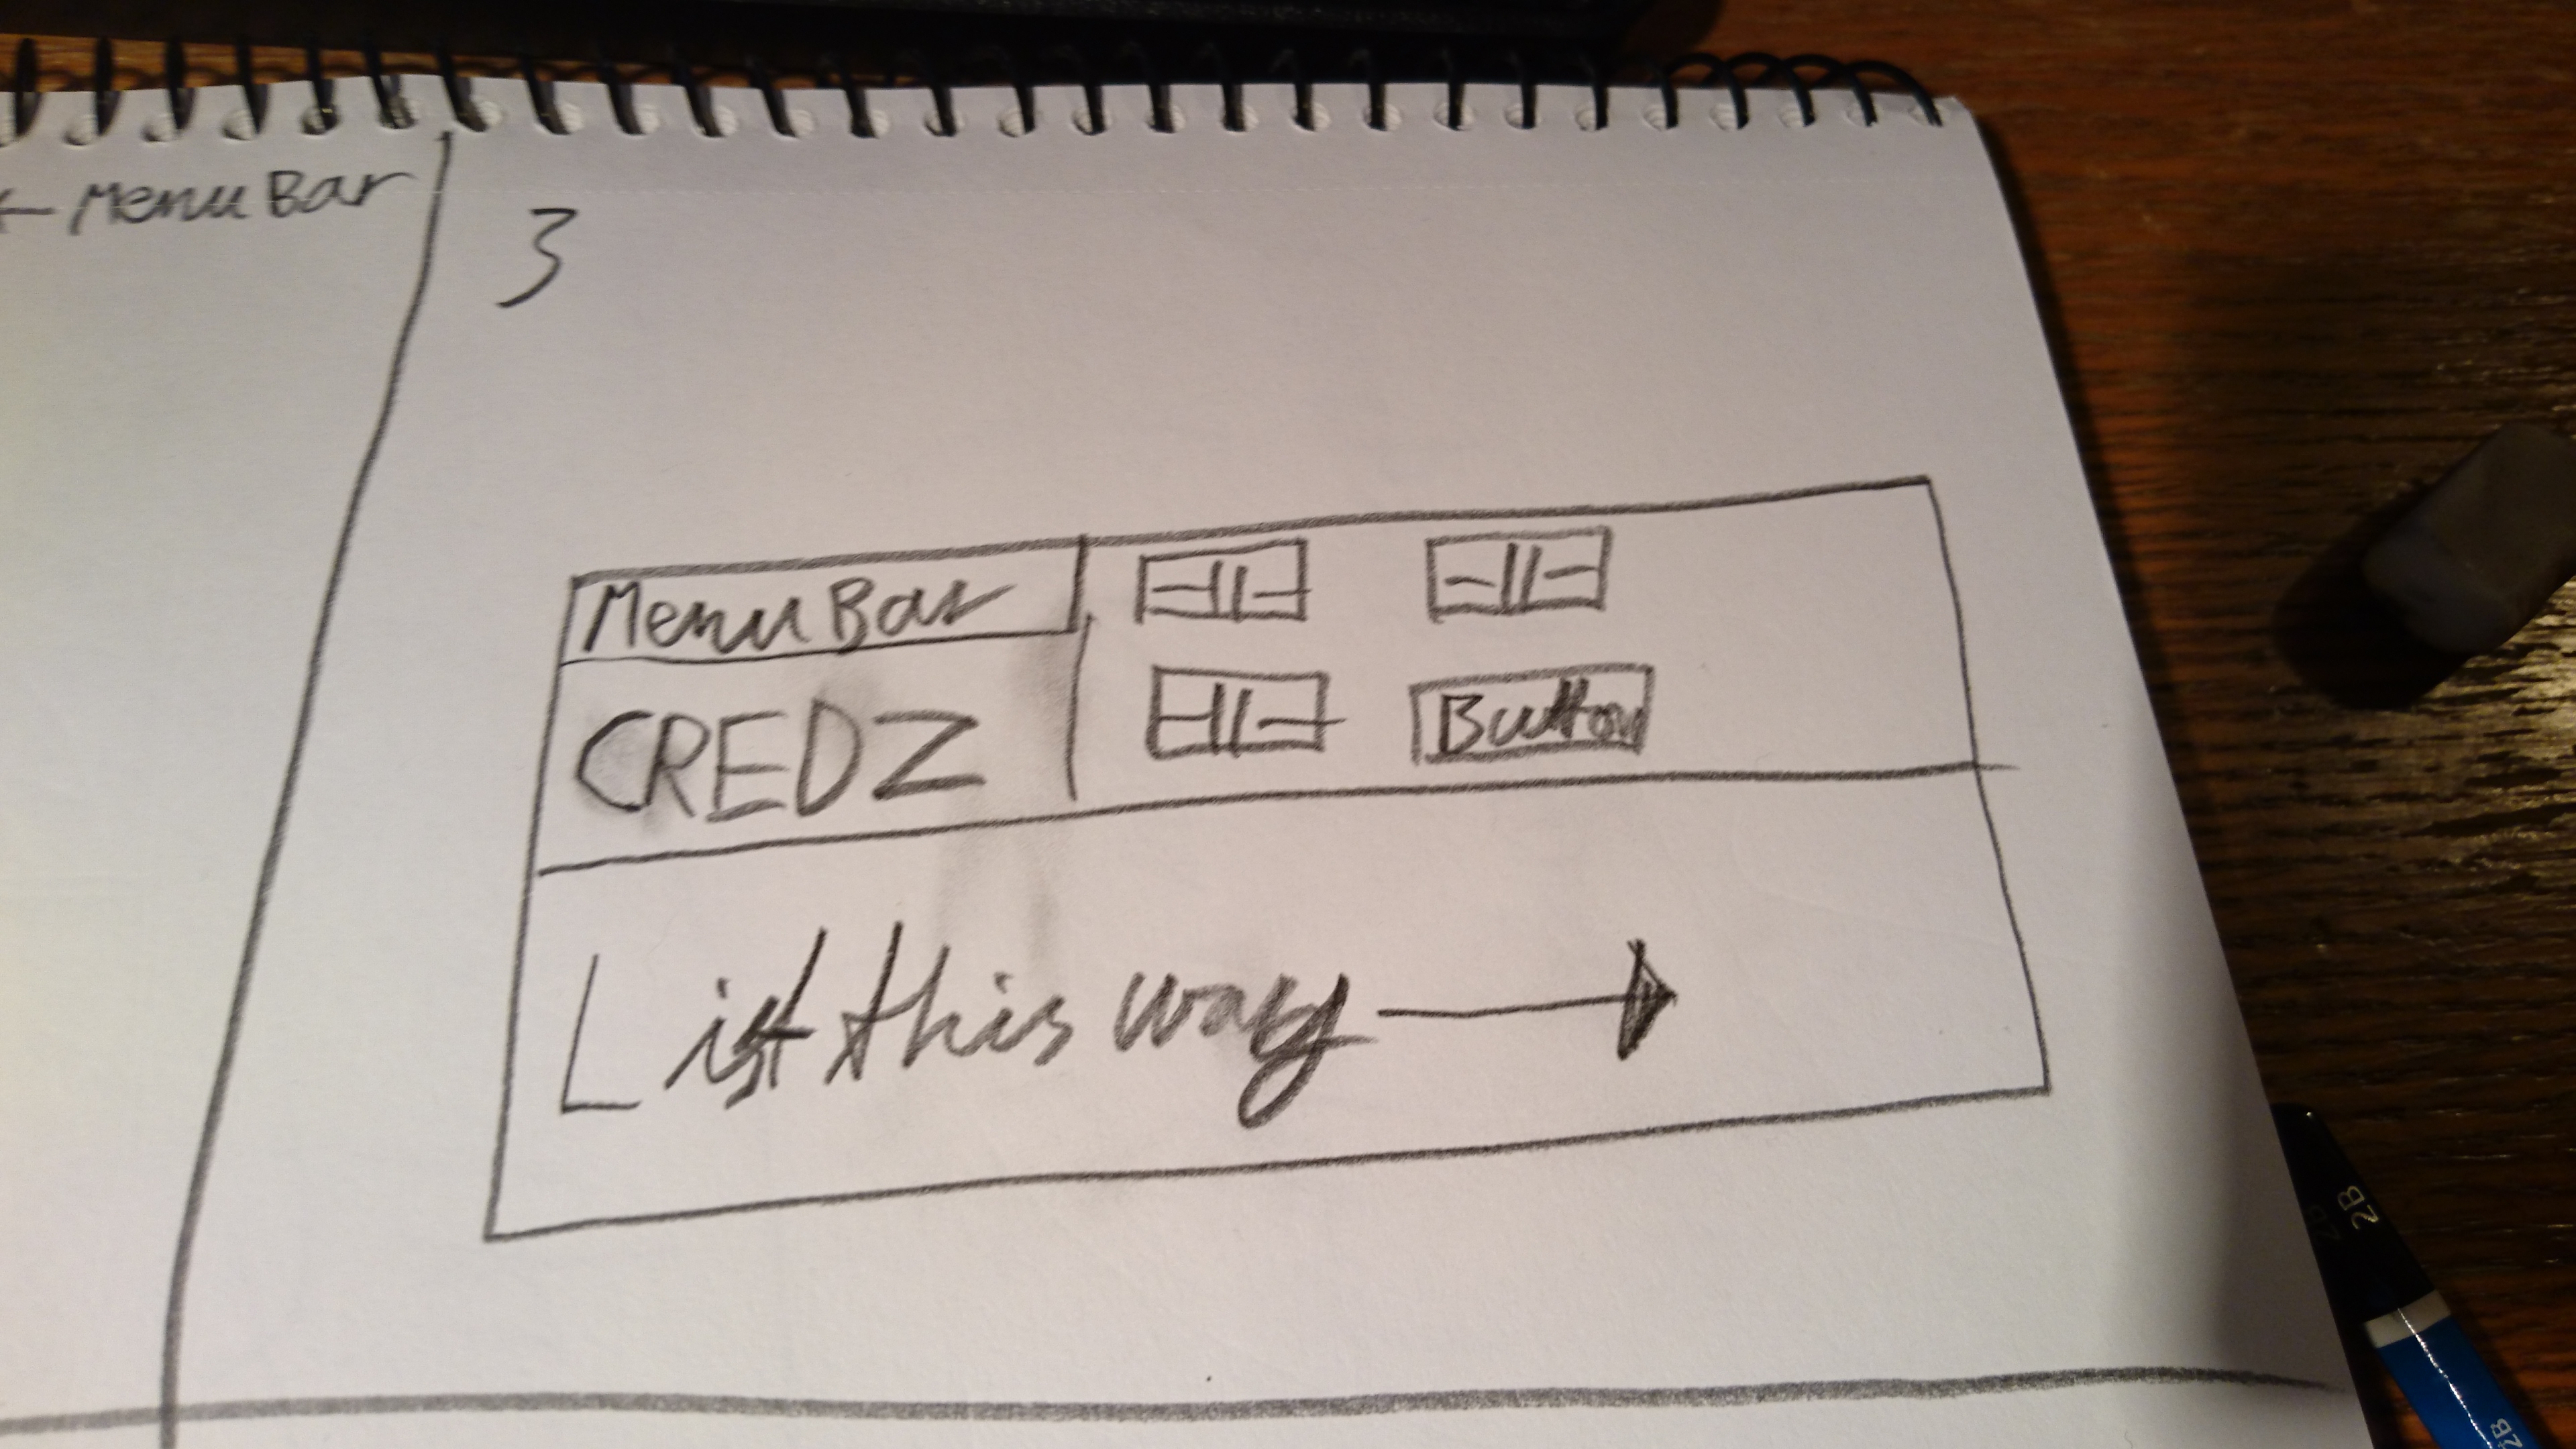 ← Menu Bar
3
Menu Bar
CREDZ
Button
List this way →
2B
2B